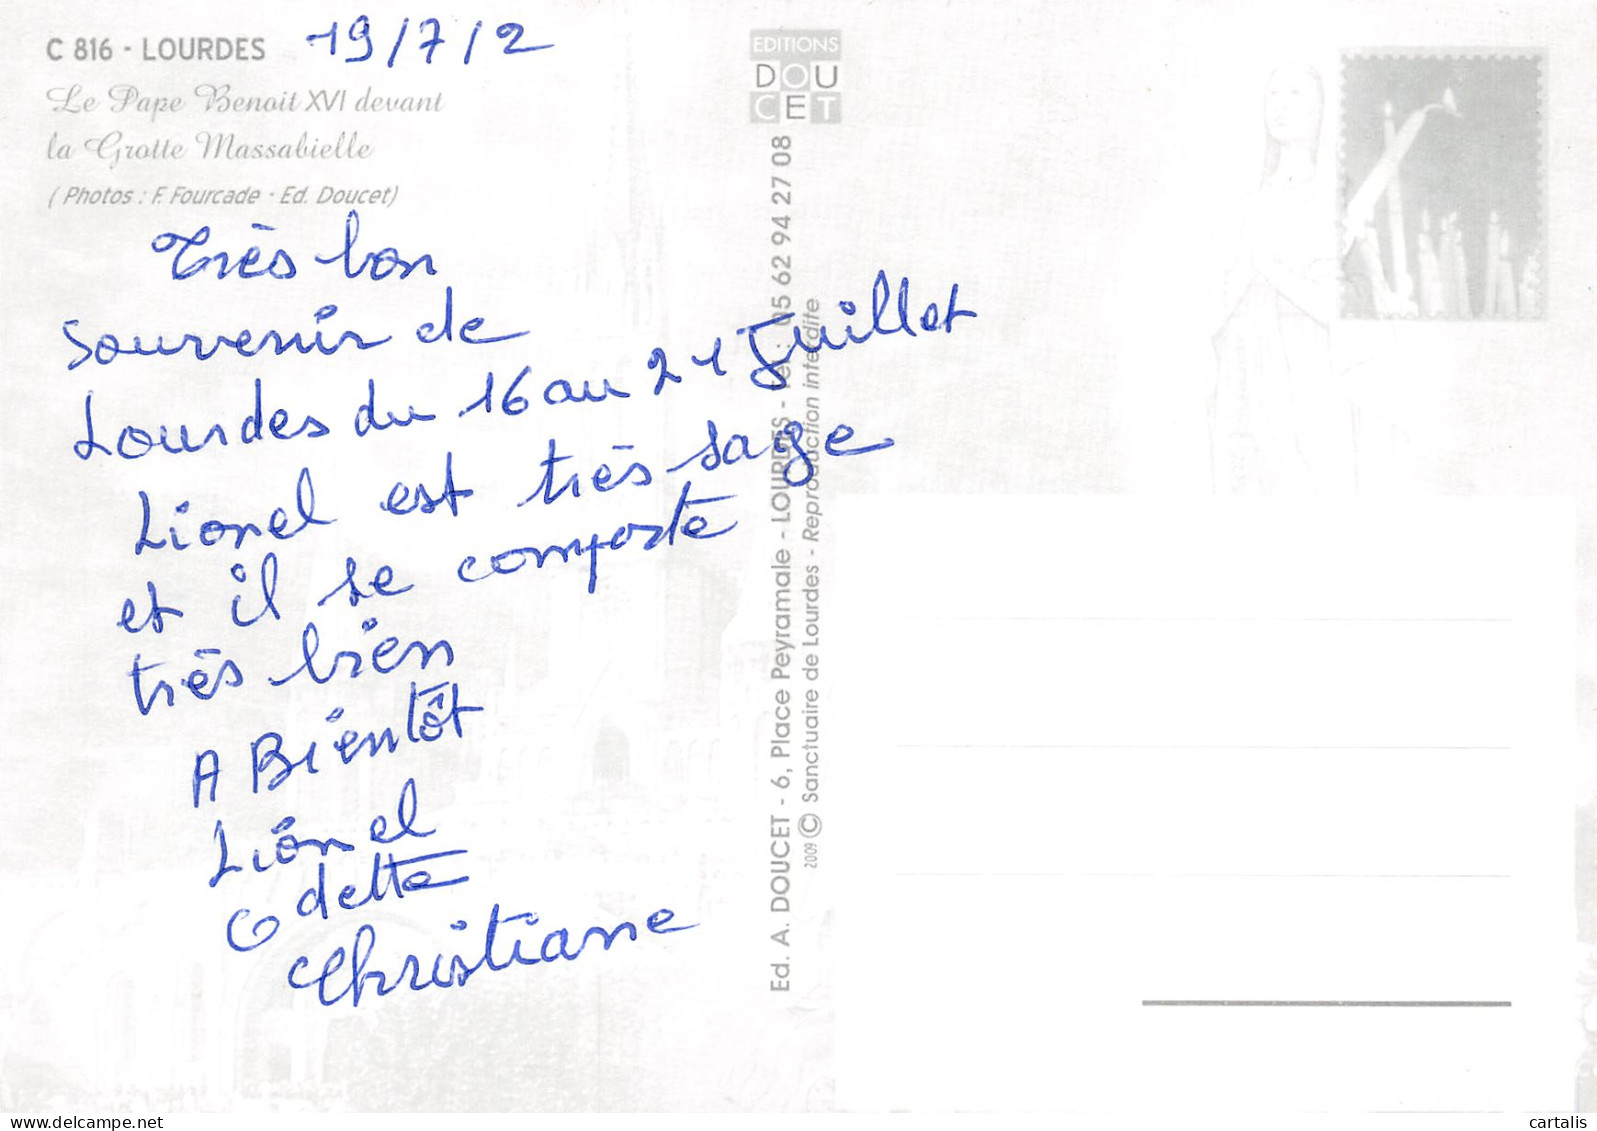 C 816 - LOURDES 19/7/2
Le Pape Benoit XVI devant
la Grotte Massabielle
(Photos : F. Fourcade - Ed. Doucet)
Très bon
souvenir de
Lourdes du 16 au 21 Juillet
Lionel est très sage
et il se comporte
très bien
A Bientôt
Lionel
Odette
Christiane
EDITIONS
DOU
CET
Ed. A. DOUCET - 6, Place Peyramale - LOURDES - Tél. : 05 62 94 27 08
2009 © Sanctuaire de Lourdes - Reproduction interdite
cartalis